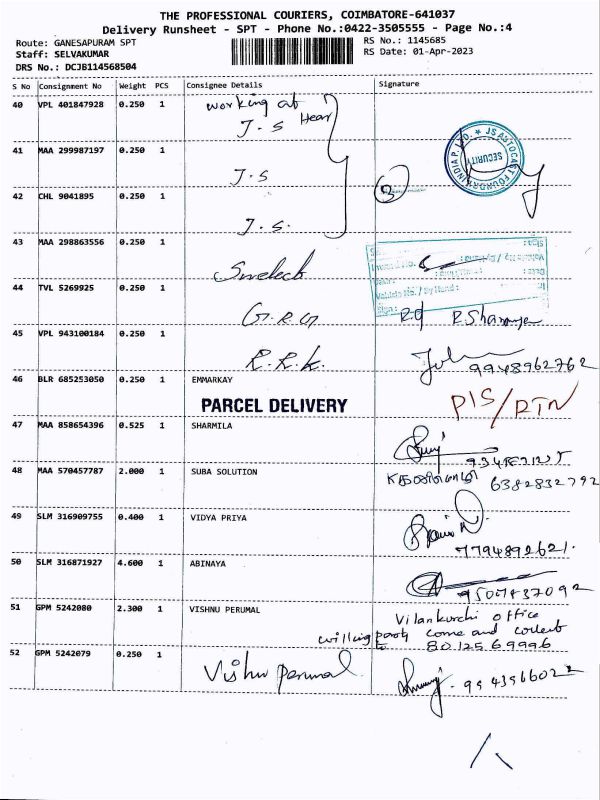 THE PROFESSIONAL COURIERS, COIMBATORE-641037
Delivery Runsheet - SPT - Phone No.:0422-3505555 - Page No.:4
Route: GANESAPURAM SPT RS No.: 1145685
Staff: SELVAKUMAR RS Date: 01-Apr-2023
DRS No.: DCJB114568504
S No Consignment No Weight PCS Consignee Details Signature
40 VPL 401847928 0.250 1 working at
J.S Hear
41 MAA 299987197 0.250 1 J.S
JS AUTOCAST FOUNDRY INDIA P. LTD. ★ SECURITY
42 CHL 9041895 0.250 1 J.S. 3
43 MAA 298863556 0.250 1
44 TVL 5269925 0.250 1 G.R.G R.Sharanya
45 VPL 943100184 0.250 1 R.R.K. John 9948962762
46 BLR 685253050 0.250 1 EMMARKAY
PARCEL DELIVERY PIS/RTN
47 MAA 858654396 0.525 1 SHARMILA
48 MAA 570457787 2.000 1 SUBA SOLUTION 6382832792
49 SLM 316909755 0.400 1 VIDYA PRIYA
7794892621.
50 SLM 316871927 4.600 1 ABINAYA
9507437092
51 GPM 5242080 2.300 1 VISHNU PERUMAL Vilankurchi office
party come and collect
8012569996
52 GPM 5242079 0.250 1 Vishnu perumal